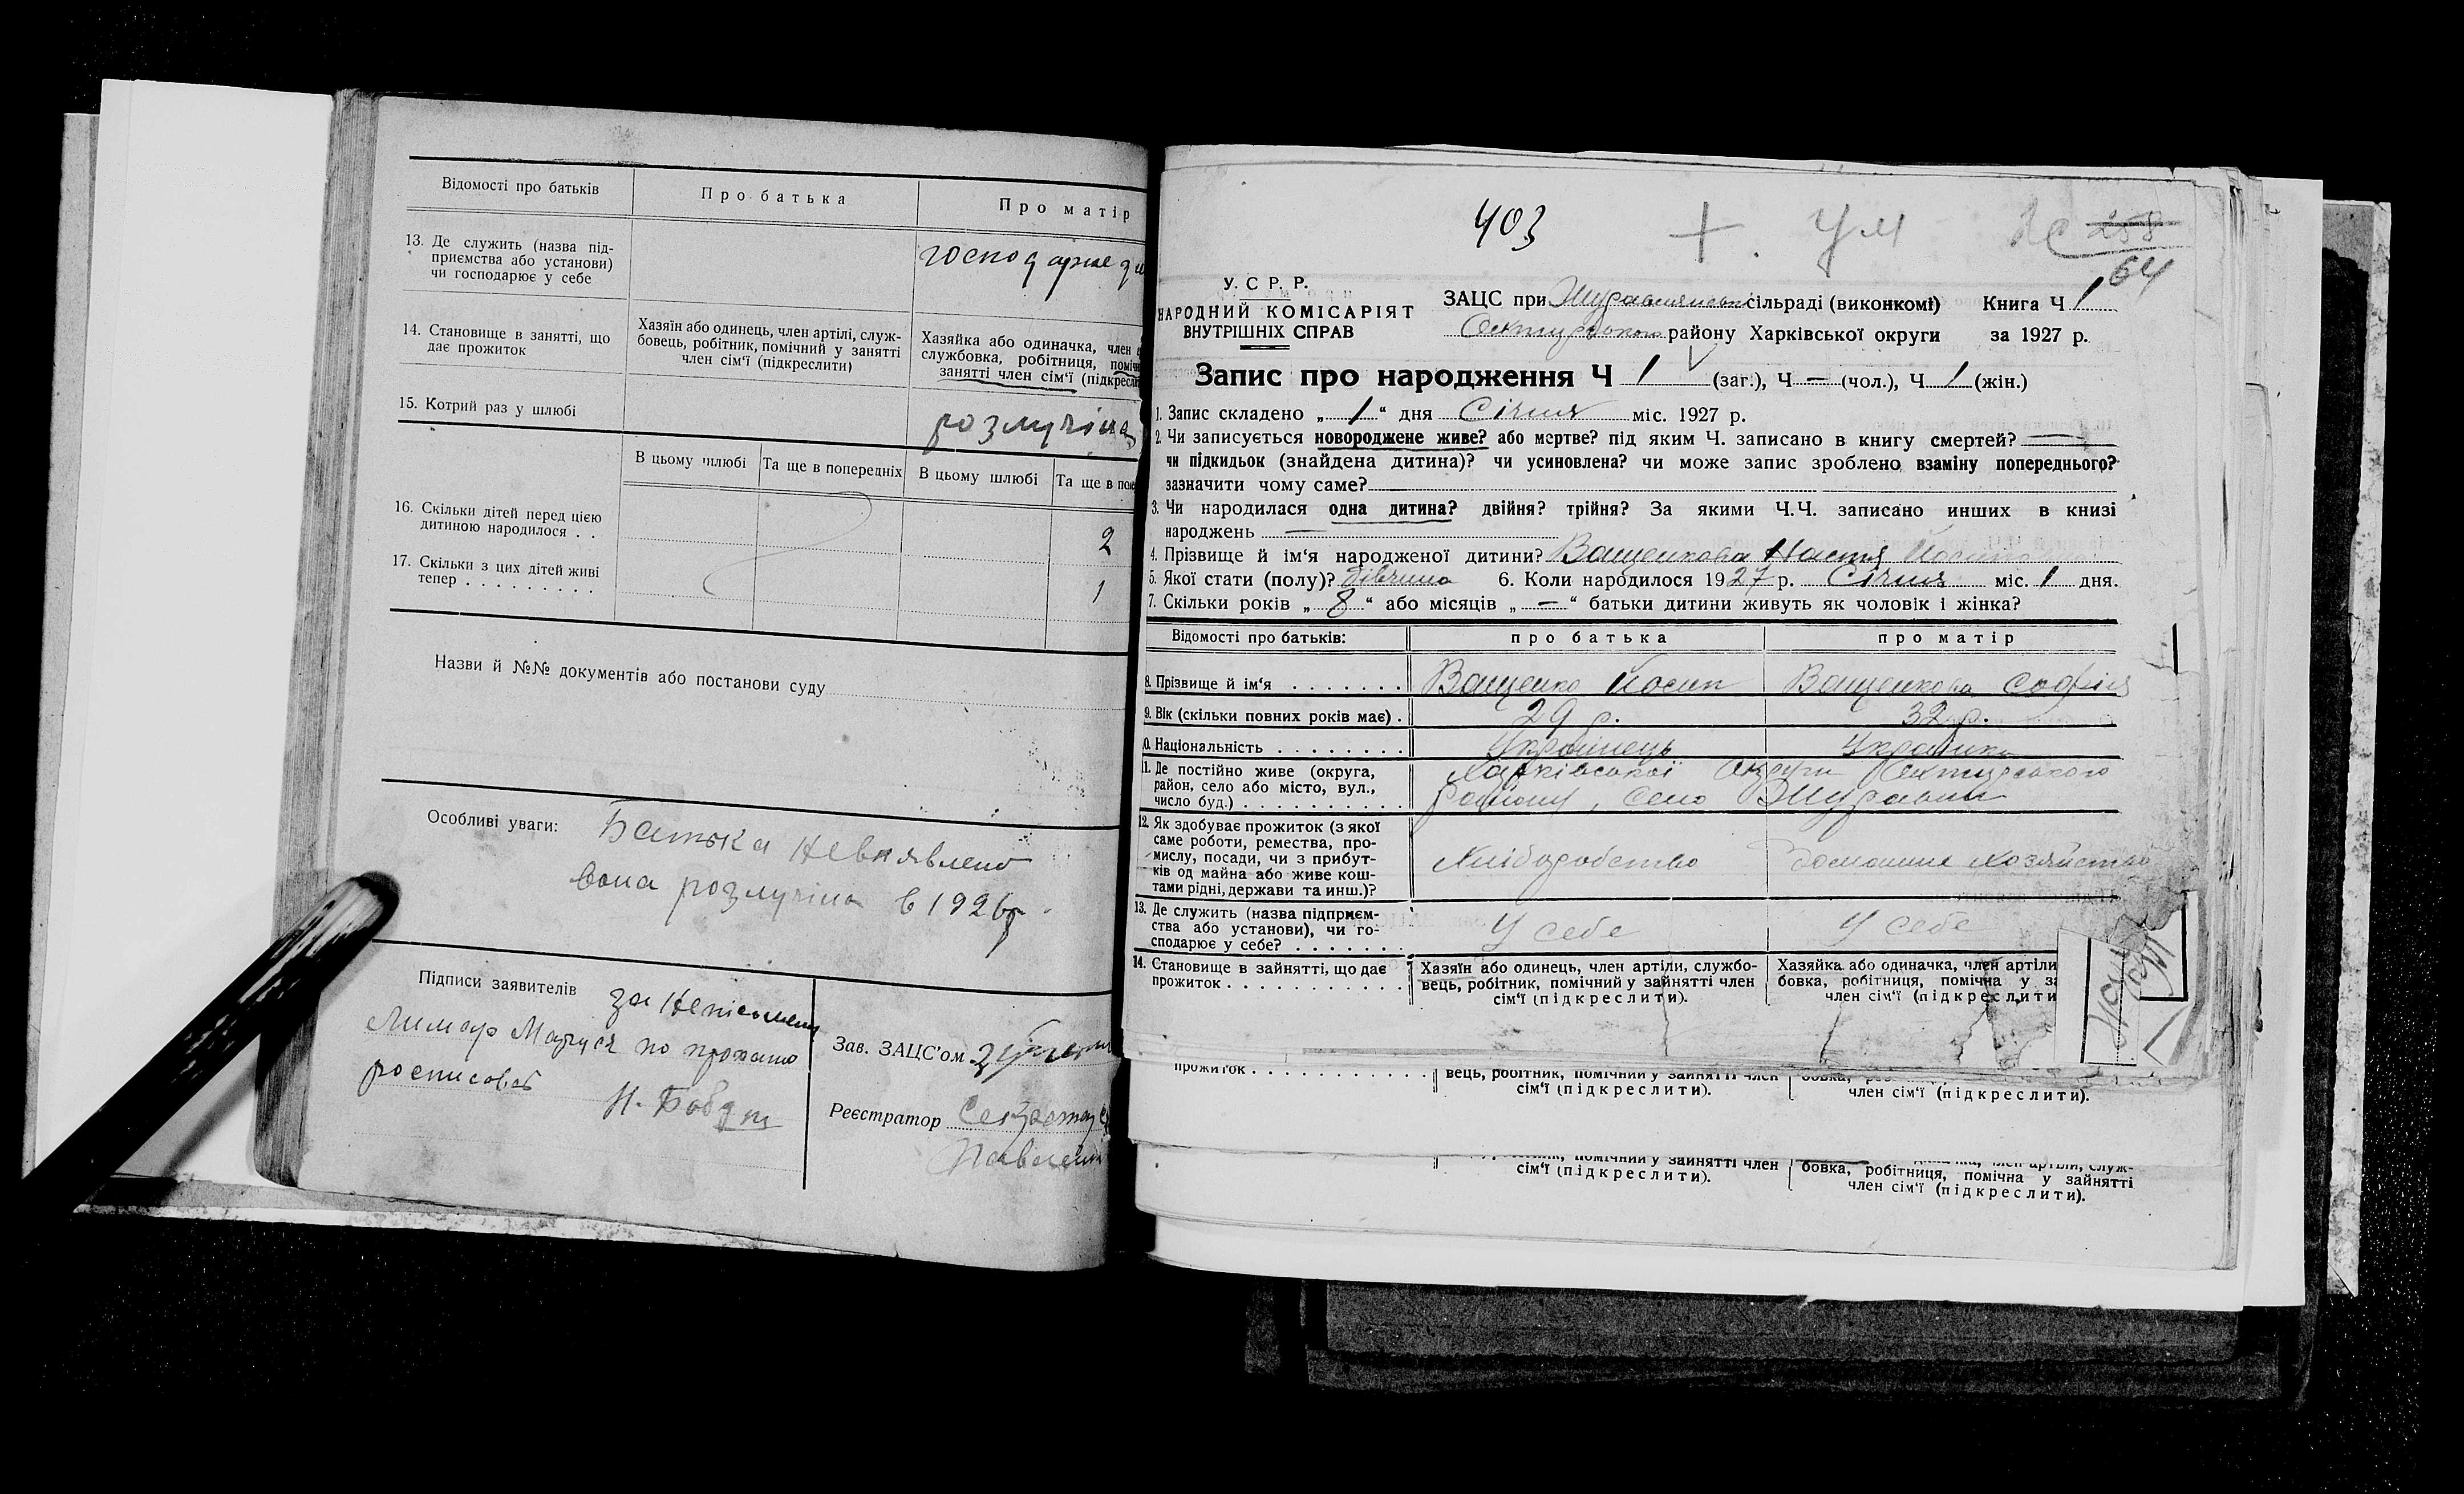 Відомості про батьків
Про батька
Про матір
13. Де служить (назва під-
приємства або установи)
чи господарює у себе
14. Становище в занятті, що
дає прожиток
Хазяїн або одинець, член артілі, служ-
бовець, робітник, помічний у занятті
член сім'ї (підкреслити)
Хазяйка або одиначка, член
службовка, робітниця,
занятті член сім'ї
15. Котрий раз у шлюбі
розлучіна
В цьому шлюбі
Та ще в попередніх
В цьому шлюбі
Та ще в
16. Скільки дітей перед цією
дитиною народилося . .
2
17. Скільки з цих дітей живі
тепер . . . . . . . . .
1
Назви й №№ документів або постанови суду
Особливі уваги:
Батька невиявлено
вона розлучіна в 1926р.
Підписи заявителів
за
по
Н.
Зав. ЗАЦС'ом
Реєстратор
403
+. Ум
258
64
У. С Р. Р.
НАРОДНИЙ КОМІСАРІЯТ
ВНУТРІШНІХ СПРАВ
ЗАЦС при сільраді (виконкомі) Книга Ч 1
району Харківської округи за 1927 р.
Запис про народження Ч 1 (заг.), Ч — (чол.), Ч 1 (жін.)
1. Запис складено „ 1 “ дня Січня міс. 1927 р.
2. Чи записується новороджене живе? або мертве? під яким Ч. записано в книгу смертей? —
чи підкидьок (знайдена дитина)? чи усиновлена? чи може запис зроблено взаміну попереднього?
зазначити чому саме?
3. Чи народилася одна дитина? двійня? трійня? За якими Ч.Ч. записано инших в книзі
народжень —
4. Прізвище й ім‘я народженої дитини? Ващенкова Настя
5. Якої стати (полу)? дівчина 6. Коли народилося 1927 р. Січня міс. 1 дня.
7. Скільки років „ 8 “ або місяців „ — “ батьки дитини живуть як чоловік і жінка?
Відомості про батьків:
про батька
про матір
8. Прізвище й ім‘я . . . . . . .
Ващенко Йосип
Ващенкова Софія
9. Вік (скільки повних років має) .
29 р.
32 р.
10. Національність . . . . . . . .
Українець
Українка
11. Де постійно живе (округа,
район, село або місто, вул.,
число буд.) . . . . . . . . . .
Харківської Округи
району, село
12. Як здобуває прожиток (з якої
саме роботи, ремества, про-
мислу, посади, чи з прибут-
ків од майна або живе кош-
тами рідні, держави та инш.)?
Хліборобство
Домашне хозяйство
13. Де служить (назва підприєм-
ства або установи), чи го-
сподарює у себе? . . . . . . .
У себе
У себе
14. Становище в зайнятті, що дає
прожиток . . . . . . . . . . .
Хазяїн або одинець, член артіли, службо-
вець, робітник, помічний у зайнятті член
сім‘ї (підкреслити).
Хазяйка або одиначка, член артіли
бовка, робітниця, помічна у
член сім‘ї (підкреслити
прожиток . . . . . . . . . . .
вець, робітник, помічний у зайнятті член
сім‘ї (підкреслити).
член сім‘ї (підкреслити).
помічний у зайнятті член
сім‘ї (підкреслити).
бовка, робітниця, помічна у зайнятті
член сім‘ї (підкреслити).